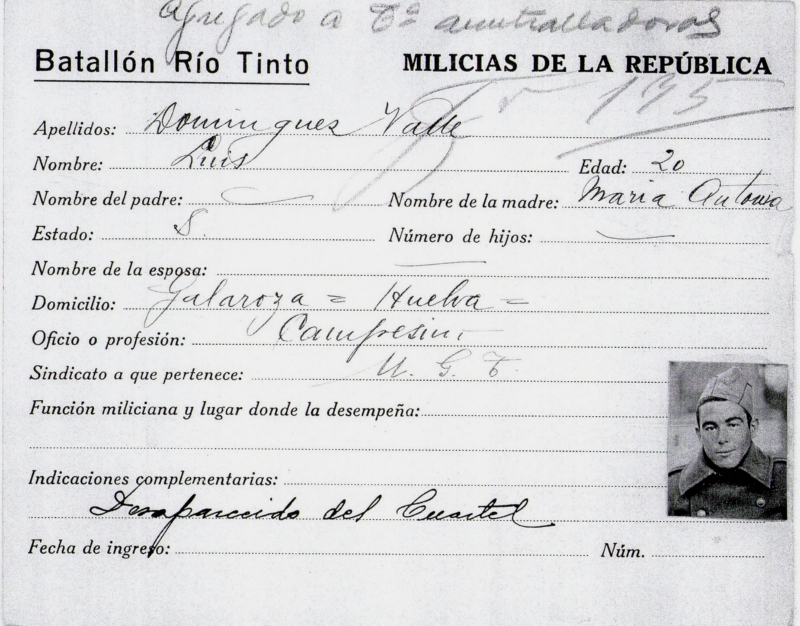 Agregado a Cª ametralladoras
Batallón Río Tinto MILICIAS DE LA REPÚBLICA
195
Apellidos: Domingues Valle
Nombre: Luis Edad: 20
Nombre del padre: — Nombre de la madre: Maria Antonia
Estado: S. Número de hijos: —
Nombre de la esposa: —
Domicilio: Galaroza = Huelva =
Oficio o profesión: Campesino
Sindicato a que pertenece: U. G. T.
Función miliciana y lugar donde la desempeña:
Indicaciones complementarias:
Desaparecido del Cuartel
Fecha de ingreso: Núm.